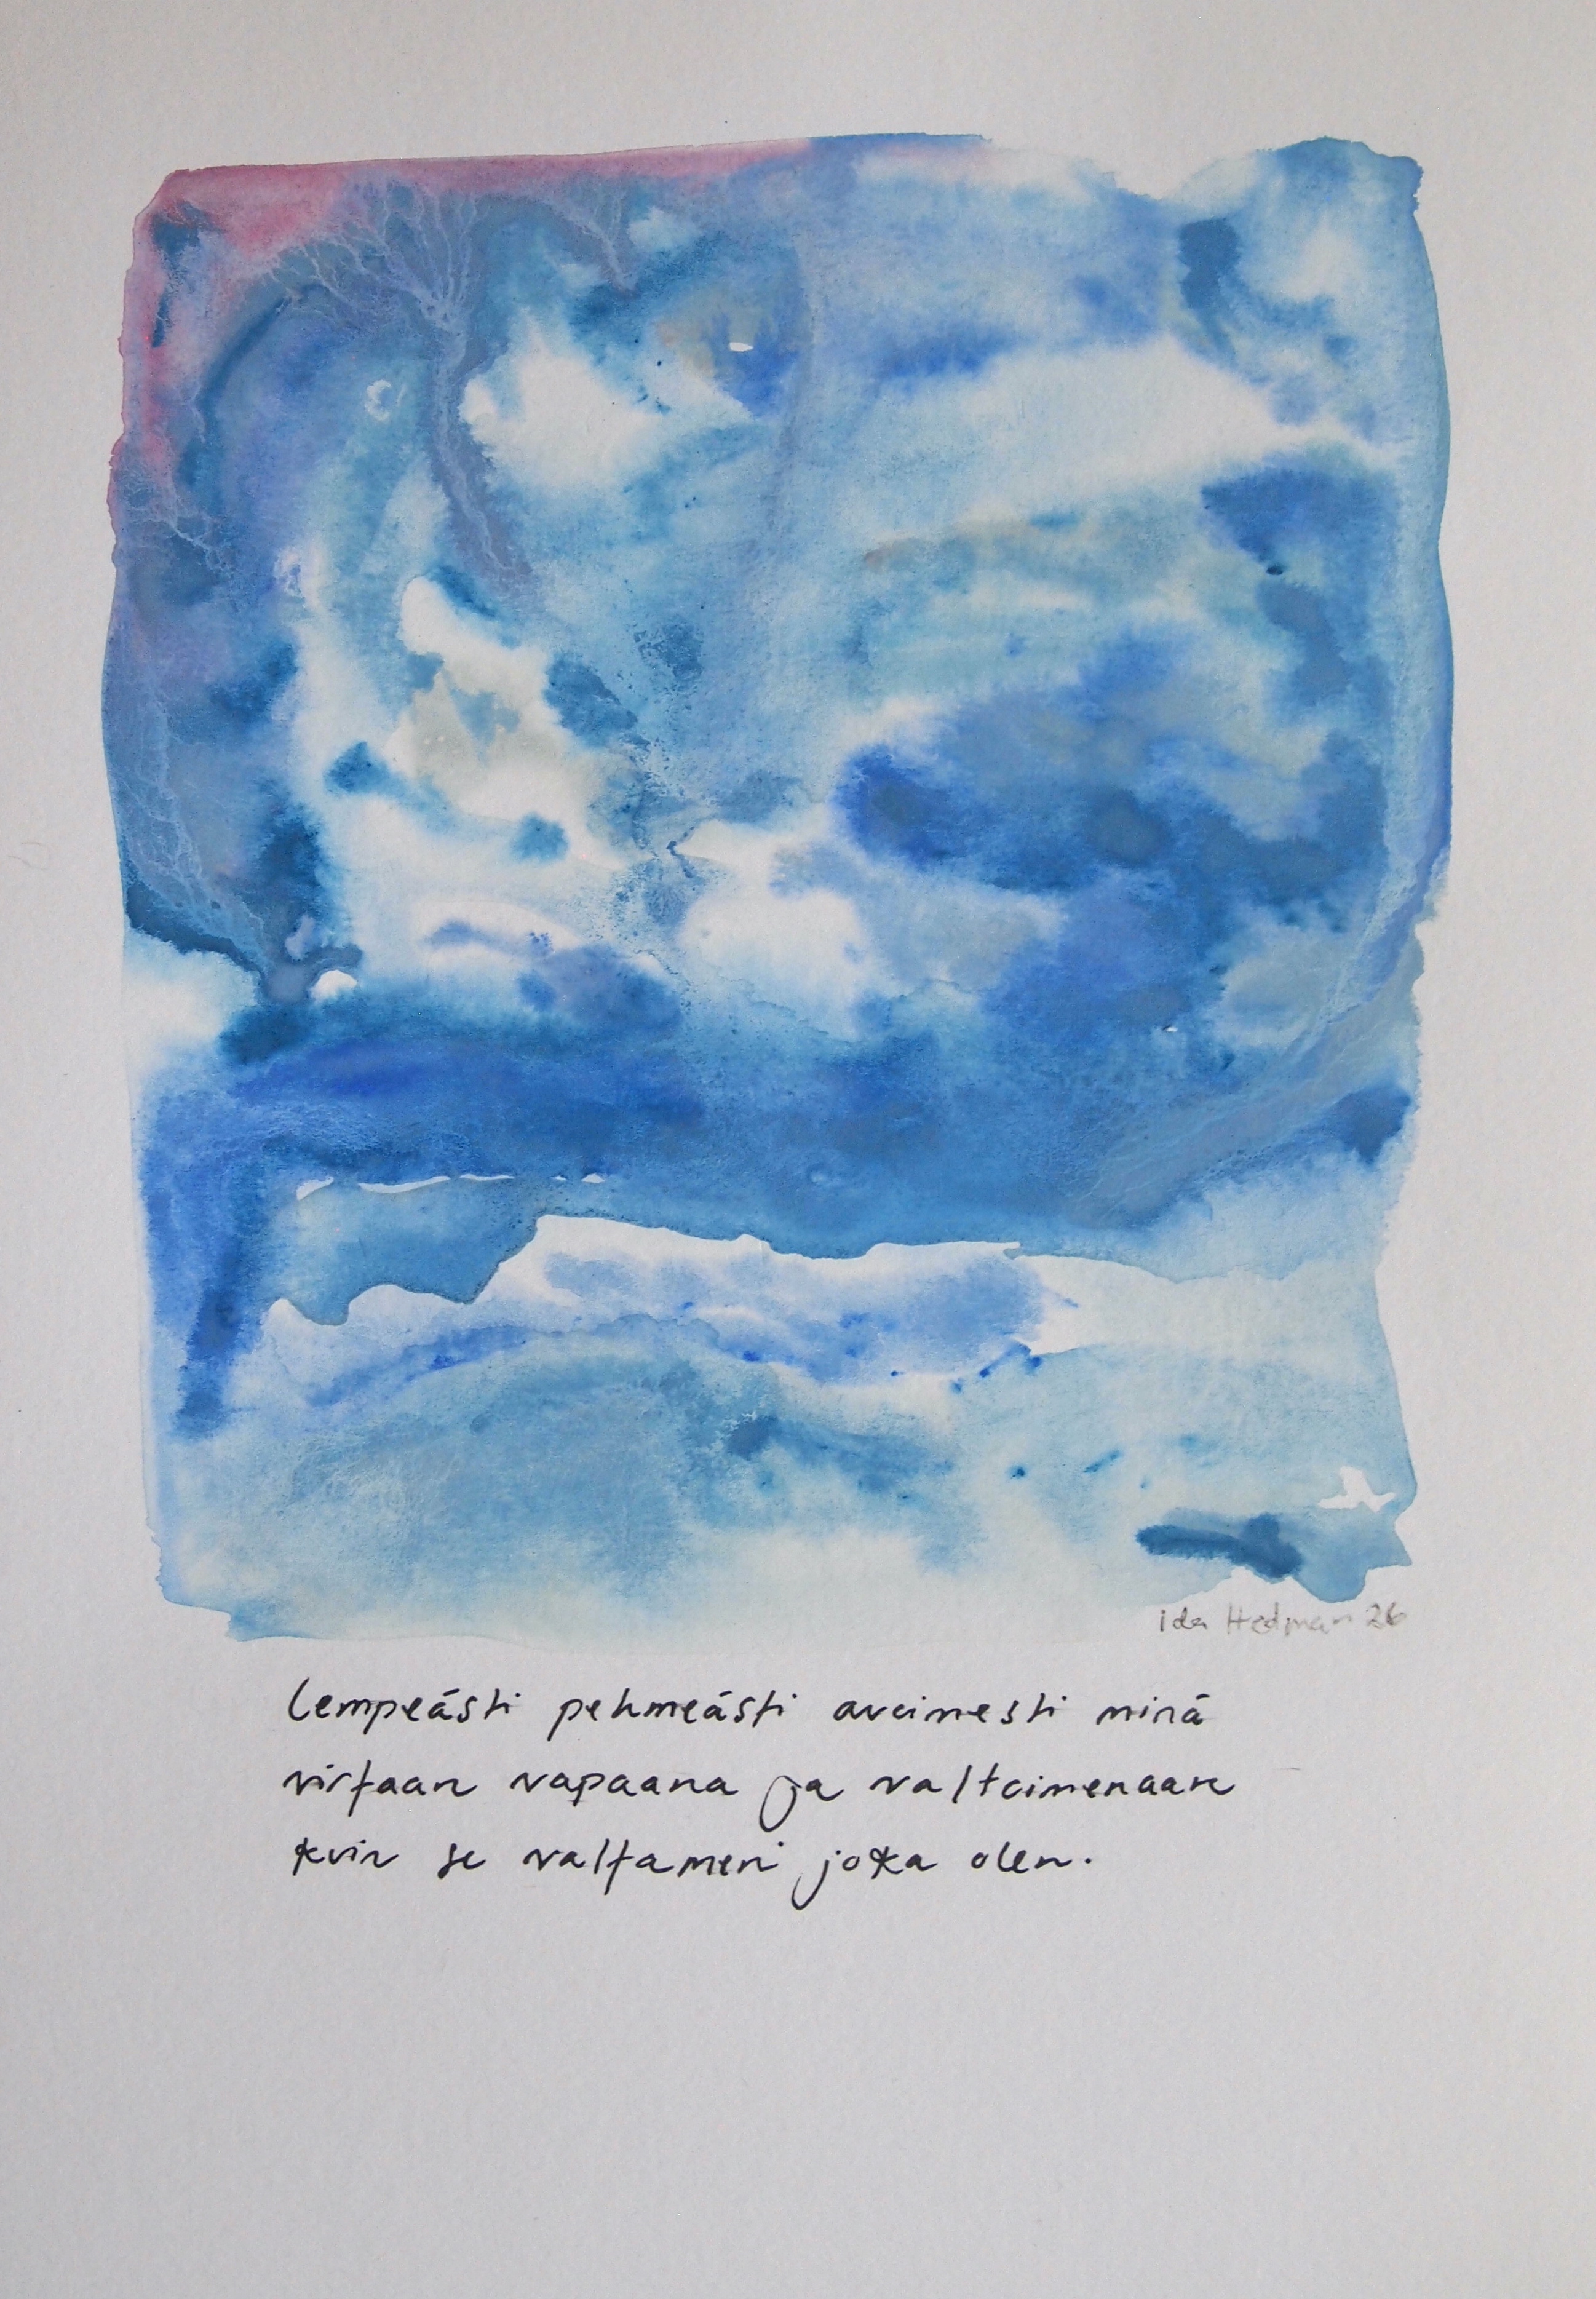 Ida Hedman 26
lempeästi pehmeästi avoimesti minä
virtaan vapaana ja valtoimenaan
kuin se valtameri joka olen.